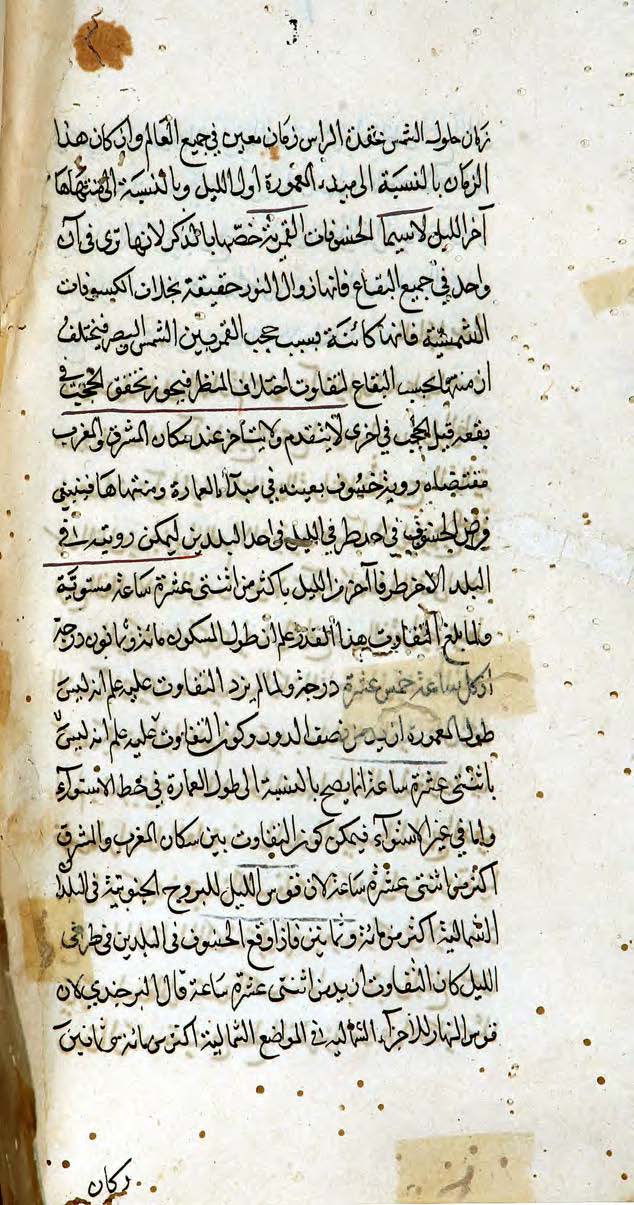 زمان حلول الشمس نقطة الراس زمان معين في جميع العالم وان كان هذا
الزمان بالنسبة الى مبدء العمورة اول الليل وبالنسبة الى منتهاها
آخر الليل لاسيما الخسوفات القمرية خصها بالذكر لانها ترى في آن
واحد في جميع البقاع فانها زوال النور حقيقة بخلاف الكسوفات
الشمسية فانها كائنة بسبب حجب القمر بين الشمس والبصر فيختلف
ازمنتها بحسب البقاع لتفاوت اختلاف المنظر فيجوز تحقق الحجب في
بقعة قبل الحجب في اخرى لا يتقدم ولا يتأخر عند سكان المشرق والمغرب
مقتضاه روية خسوف بعينه في مبدأ العمارة ومنتهاها فينبغي
فرض الخسوف في احد طرفي الليل في احد البلدين ليمكن رويته في
البلد الاخر طرفا آخر من الليل باكثر من اثنتى عشرة ساعة مستوية
ولما بلغ التفاوت هذا القدر علم ان طول المسكون مائة وثمانون درجة
اذ كل ساعة خمس عشرة درجة ولما لم يزد التفاوت عليه علم انه ليس
طول المعمورة ازيد من نصف الدور وكون التفاوت عليه علم انه ليس
باثنتى عشرة ساعة انما يصح بالنسبة الى طول العمارة في خط الاستوآء
واما في غير الاستوآء فيمكن كون التفاوت بين سكان المغرب والمشرق
اكثر من اثنتى عشرة ساعة لان قوس الليل للبروج الجنوبية في البلاد
الشمالية اكثر من مائة وثمانين فاذا وقع الخسوف في البلدين في طرفي
الليل كان التفاوت ازيد من اثنتى عشرة ساعة قال البرجندي لان
قوس النهار للاجزآء الشمالية في المواضع الشمالية اكثر من مائة وثمانين
وكان